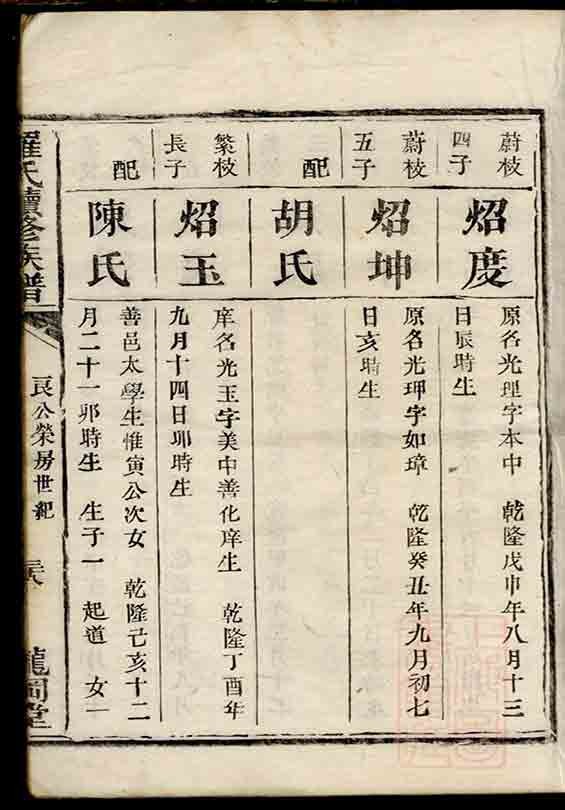 蔚枝
四子
炤度
原名光理字本中 乾隆戊申年八月十三
日辰時生
蔚枝
五子
炤坤
原名光玾字如璋 乾隆癸丑年九月初七
日亥時生
配
胡氏
繁枝
長子
炤玉
庠名光玉字美中善化庠生 乾隆丁酉年
九月十四日卯時生
配
陳氏
善邑太學生惟寅公次女 乾隆己亥十二
月二十一卯時生 生子一 起道 女一
羅氏續修族譜
良公榮房世紀